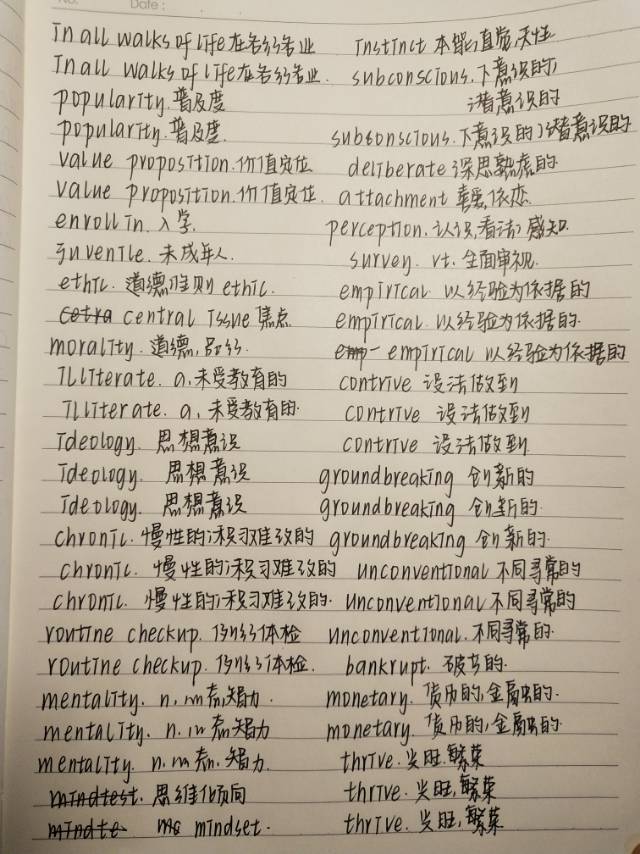 Date:
In all walks of life 在各行各业 instinct 本能,直觉,天性
In all walks of life 在各行各业. subconscious.下意识的;
popularity.普及度 潜意识的
popularity.普及度. subsonscious.下意识的;潜意识的
value proposition.价值定位 deliberate 深思熟虑的
value proposition.价值定位. attachment 喜爱,依恋
enroll in.入学. perception.认识,看法;感知.
juventle.未成年人. survey. vt.全面审视.
ethic.道德准则 ethic. empirical.以经验为依据的
cetra central issue 焦点 empirical.以经验为依据的.
morality.道德,品行 emp- empirical 以经验为依据的
illiterate. a,未受教育的 contrive 设法做到
illiterate. a,未受教育的. contrive 设法做到
ideology. 思想意识 contrive 设法做到
ideology. 思想意识 groundbreaking 创新的
ideology. 思想意识 groundbreaking 创新的.
chronic.慢性的;积习难改的 groundbreaking 创新的.
chronic.慢性的;积习难改的 unconventional 不同寻常的
chronic.慢性的;积习难改的. unconventional 不同寻常的
routine checkup.例行体检 unconventional.不同寻常的.
routine checkup.例行体检. bankrupt.破产的.
mentality. n.心态,智力. monetary.货币的,金融的.
mentality. n.心态,智力 monetary.货币的,金融的.
mentality. n.心态,智力. thrive.兴旺,繁荣
mindtest.思维化倾向 thrive.兴旺,繁荣
mindte mindset. thrive.兴旺,繁荣